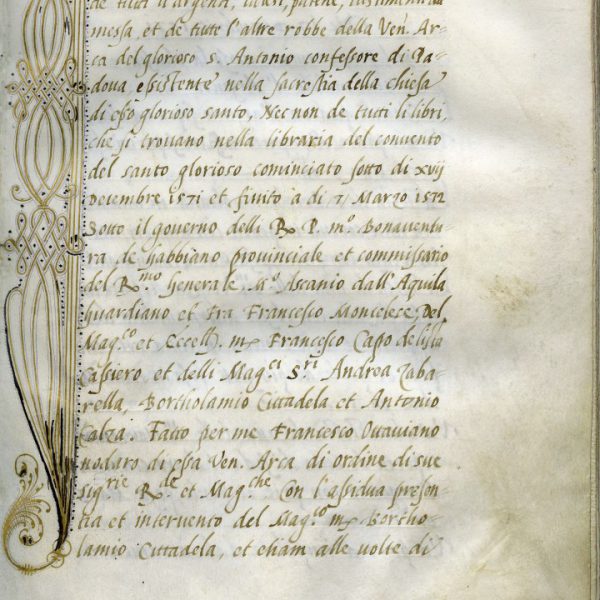 de tutti l'argenti, calici, patene,
messa, et de tute l'altre robbe della Ven. Ar-
ca del glorioso s. Antonio confessore di Pa-
dova esistente nella sacrestia della chiesa
di esso glorioso santo, Necnon de tutti li libri,
che si trovano nella libraria del convento
del santo glorioso cominciato sotto di xvij
Decembre 1571 et finito à di 7 Marzo 1572
Sotto il governo delli R. P. m.º Bonaventu-
ra de habbiano provinciale et commissario
del R.mo Generale, M.º Ascanio dall'Aquila
guardiano et Fra Francesco Moncelece Del
Mag.co et Eccell. m. Francesco Capo de lista
Cassiero et delli Mag.ci S.ri Andrea Zaba-
rella, Bortholamio Cittadela et Antonio
Calza. Fatto per me Francesco Ottaviano
nodaro di essa Ven. Arca di ordine di sue
sig.rie R.de et Mag.che Con l'assidua presen-
tia et intervento del Mag.co m. Bortho-
lamio Cittadela, et etiam alle volte di